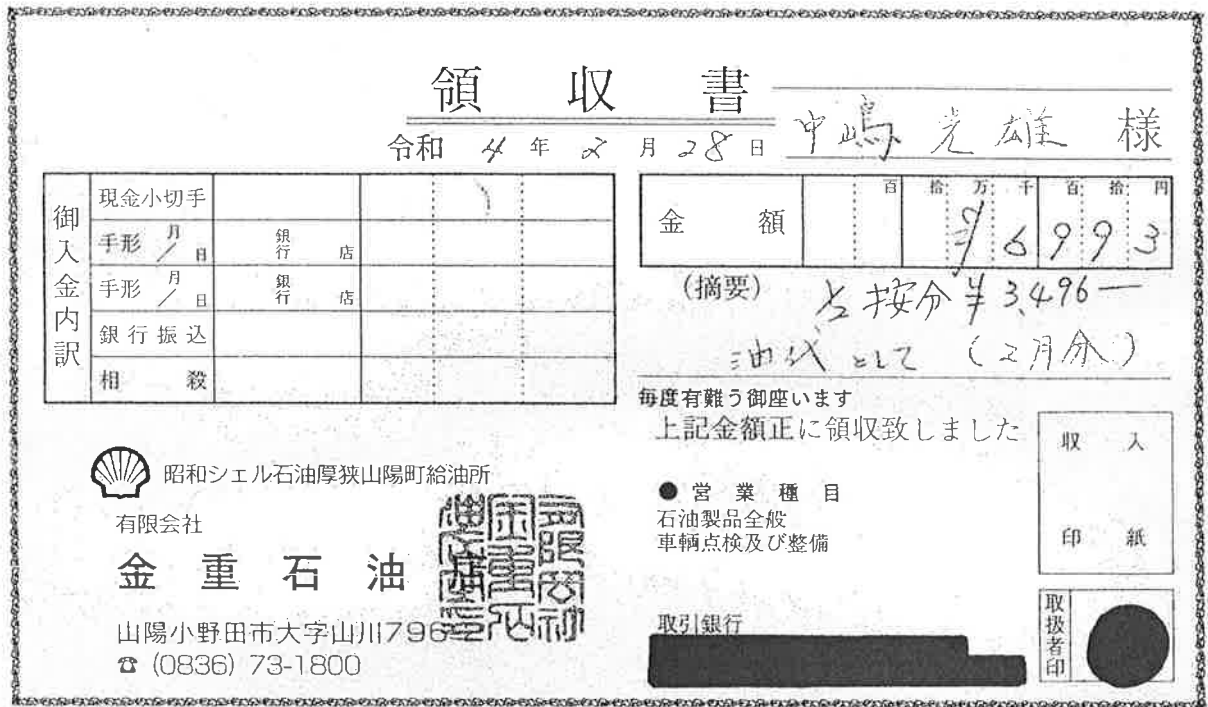 領収書
令和 4 年 2 月 28 日
中嶋 光雄 様
御入金内訳
現金小切手
手形 月/日 銀行 店
手形 月/日 銀行 店
銀行振込
相殺
金額 百 拾 万 千 百 拾 円
¥6993
(摘要)
½ 按分 ¥3,496―
油代として (2月分)
毎度有難う御座います
上記金額正に領収致しました
収入
印紙
昭和シェル石油厚狭山陽町給油所
有限会社
金重石油店
山陽小野田市大字山川796-2
☎ (0836) 73-1800
● 営業種目
石油製品全般
車輌点検及び整備
取引銀行
取扱者印